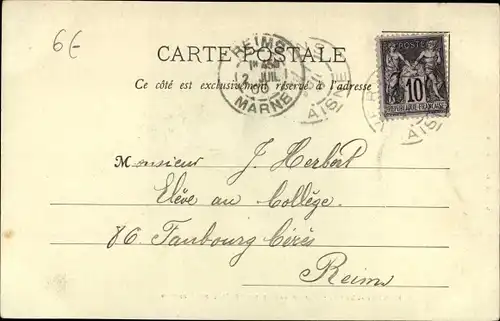 6€
CARTE POSTALE
Ce côté est exclusivement réservé à l'adresse
REIMS
2 JUIL
MARNE
AISNE
POSTE
10
RÉPUBLIQUE FRANÇAISE
AISNE
Monsieur J. Herbert
Elève au Collège
86 Faubourg Cérès
Reims